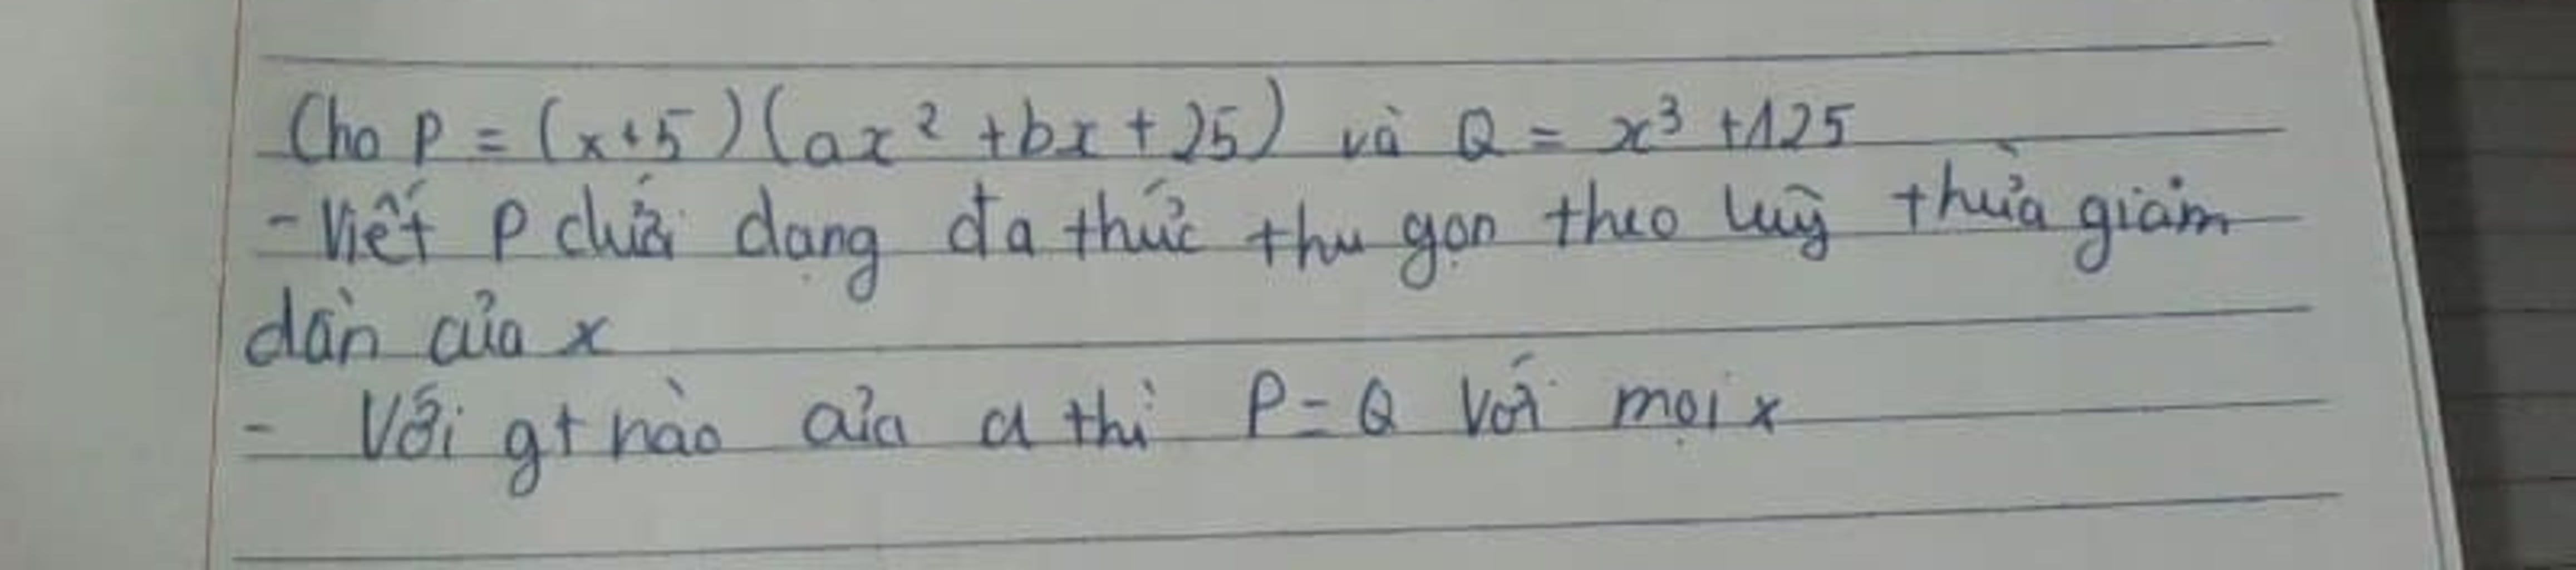 Cho P = (x+5)(ax² + bx + 25) và Q = x³ + 125
- Viết P dưới dạng đa thức thu gọn theo luỹ thừa giảm
dần của x
- Với gt nào của a thì P = Q với mọi x